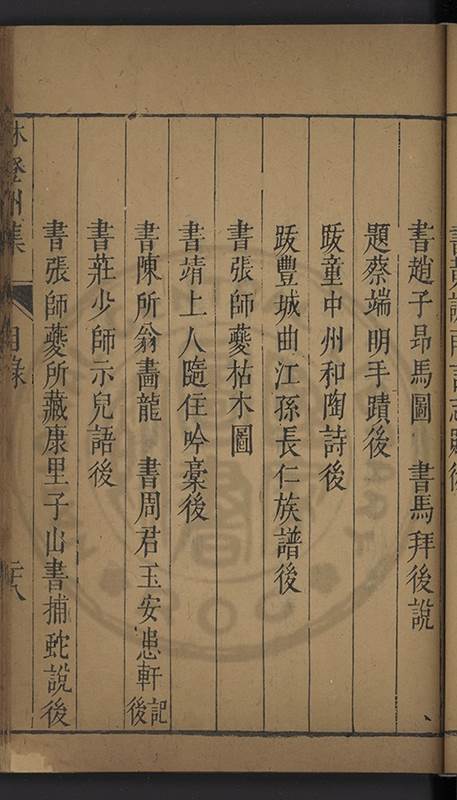 書趙子昂馬圖　書馬拜後說
題蔡端明手蹟後
跋童中州和陶詩後
跋豐城曲江孫長仁族譜後
書張師夔枯木圖
書靖上人隨住吟稾後
書陳所翁畵龍　書周君玉安患軒記後
書莊少師示兒語後
書張師夔所藏康里子山書捕蛇說後
林登州集
目錄